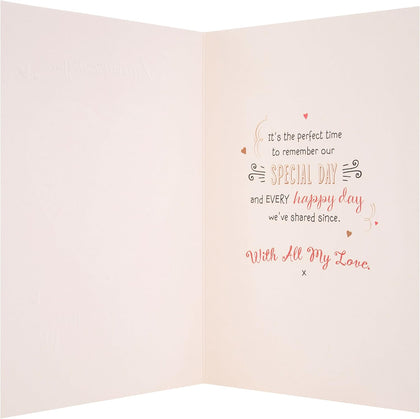 It's the perfect time
to remember our
SPECIAL DAY
and EVERY happy day
we've shared since.
With All My Love,
x